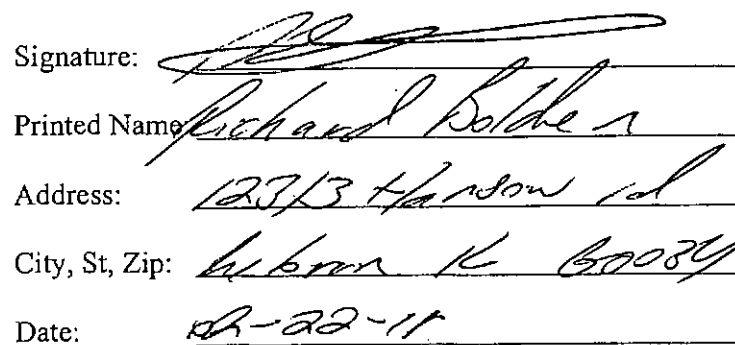 Signature:
Printed Name Richard
Address: 12313 Hanson rd
City, St, Zip: Hebron Il 60034
Date: